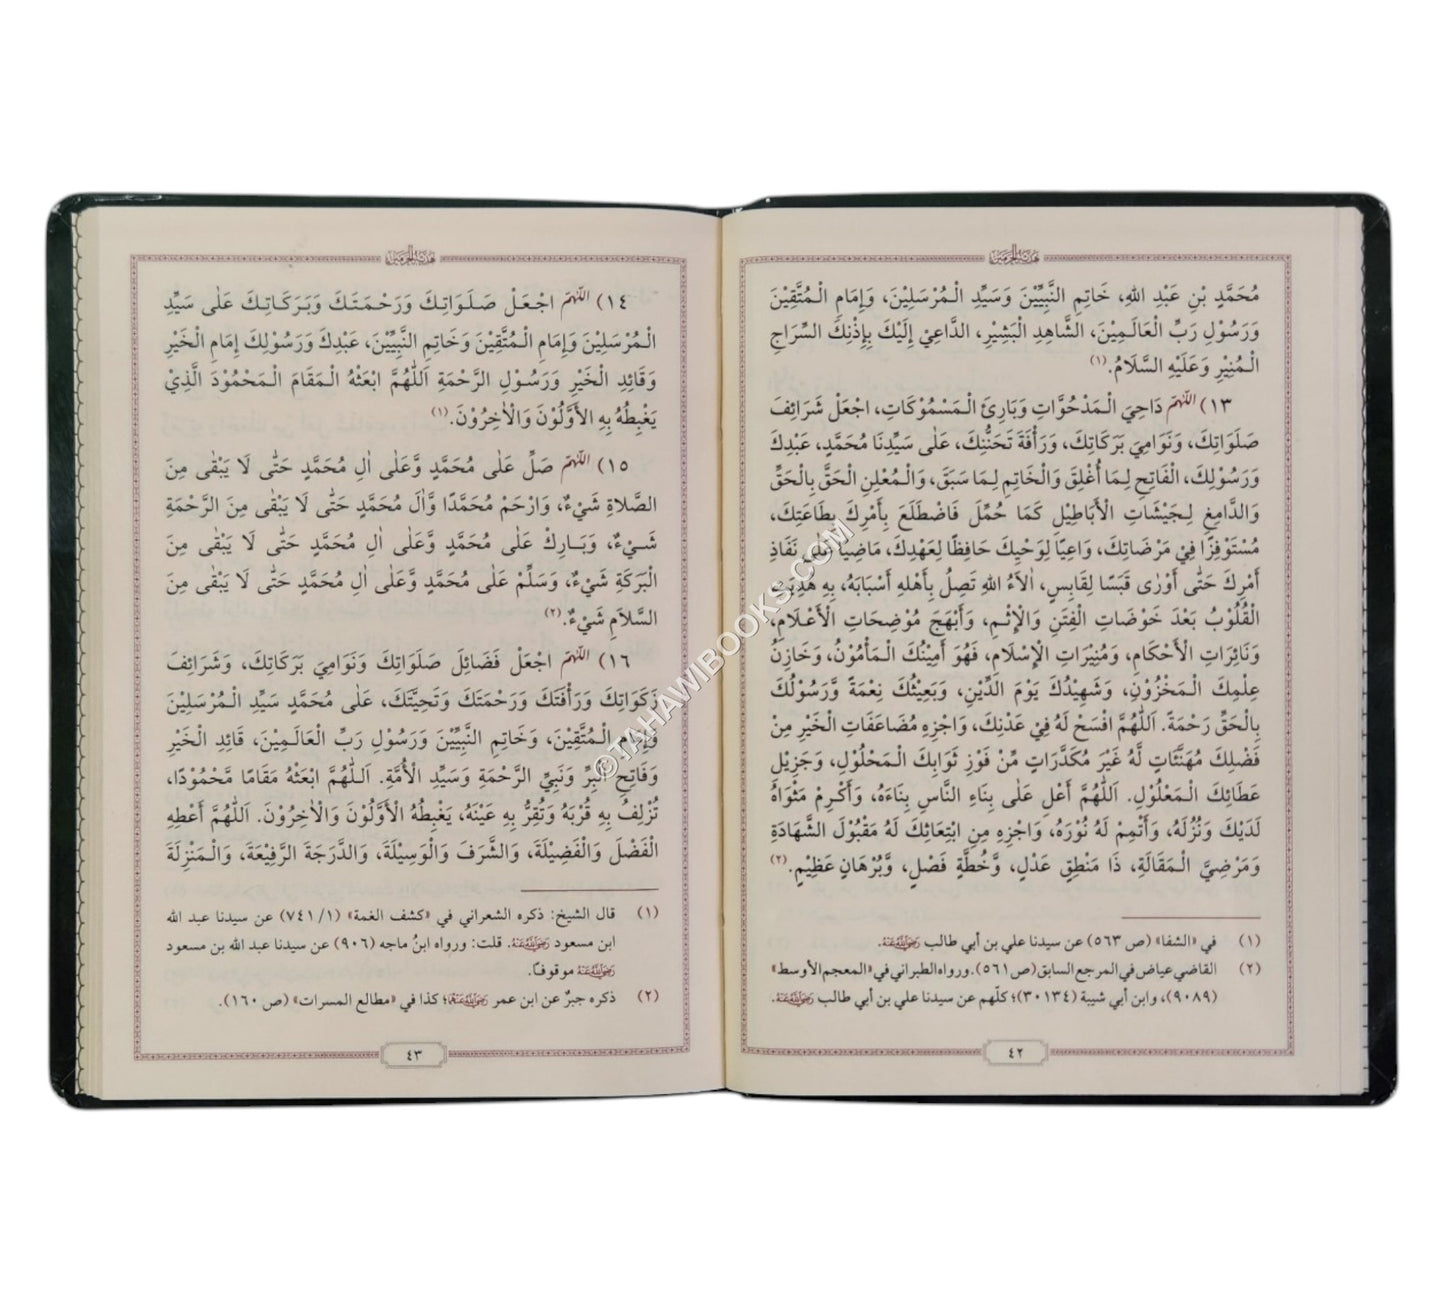 هدية الحرمين
مُحَمَّدٍ بْنِ عَبْدِ اللهِ، خَاتِمِ النَّبِيِّيْنَ وَسَيِّدِ الْمُرْسَلِيْنَ، وَإِمَامِ الْمُتَّقِيْنَ
وَرَسُوْلِ رَبِّ الْعَالَمِيْنَ، الشَّاهِدِ الْبَشِيْرِ، الدَّاعِيْ إِلَيْكَ بِإِذْنِكَ السِّرَاجِ
الْمُنِيْرِ وَعَلَيْهِ السَّلَامُ.(١)
١٣) اَللّٰهُمَّ دَاحِيَ الْمَدْحُوَّاتِ وَبَارِئَ الْمَسْمُوْكَاتِ، اجْعَلْ شَرَائِفَ
صَلَوَاتِكَ، وَنَوَامِيَ بَرَكَاتِكَ، وَرَأْفَةَ تَحَنُّنِكَ، عَلٰى سَيِّدِنَا مُحَمَّدٍ، عَبْدِكَ
وَرَسُوْلِكَ، الْفَاتِحِ لِمَا أُغْلِقَ وَالْخَاتِمِ لِمَا سَبَقَ، وَالْمُعْلِنِ الْحَقَّ بِالْحَقِّ
وَالدَّامِغِ لِجَيْشَاتِ الْأَبَاطِيْلِ كَمَا حُمِّلَ فَاضْطَلَعَ بِأَمْرِكَ بِطَاعَتِكَ،
مُسْتَوْفِزًا فِيْ مَرْضَاتِكَ، وَاعِيًا لِوَحْيِكَ حَافِظًا لِعَهْدِكَ، مَاضِيًا عَلٰى نَفَاذِ
أَمْرِكَ حَتّٰى أَوْرٰى قَبَسًا لِقَابِسٍ، اٰلَاءُ اللهِ تَصِلُ بِأَهْلِهِ أَسْبَابَهُ، بِهِ هُدِيَتِ
الْقُلُوْبُ بَعْدَ خَوْضَاتِ الْفِتَنِ وَالْإِثْمِ، وَأَبْهَجَ مُوْضِحَاتِ الْأَعْلَامِ،
وَنَائِرَاتِ الْأَحْكَامِ، وَمُنِيْرَاتِ الْإِسْلَامِ، فَهُوَ أَمِيْنُكَ الْمَأْمُوْنُ، وَخَازِنُ
عِلْمِكَ الْمَخْزُوْنِ، وَشَهِيْدُكَ يَوْمَ الدِّيْنِ، وَبَعِيْثُكَ نِعْمَةً وَّرَسُوْلُكَ
بِالْحَقِّ رَحْمَةً. اَللّٰهُمَّ افْسَحْ لَهُ فِيْ عَدْنِكَ، وَاجْزِهِ مُضَاعَفَاتِ الْخَيْرِ مِنْ
فَضْلِكَ مُهَنَّئَاتٍ لَّهُ غَيْرَ مُكَدَّرَاتٍ مِّنْ فَوْزِ ثَوَابِكَ الْمَحْلُوْلِ، وَجَزِيْلِ
عَطَائِكَ الْمَعْلُوْلِ. اَللّٰهُمَّ أَعْلِ عَلٰى بِنَاءِ النَّاسِ بِنَاءَهُ، وَأَكْرِمْ مَثْوَاهُ
لَدَيْكَ وَنُزُلَهُ، وَأَتْمِمْ لَهُ نُوْرَهُ، وَاجْزِهِ مِنِ ابْتِعَاثِكَ لَهُ مَقْبُوْلَ الشَّهَادَةِ
وَمَرْضِيَّ الْمَقَالَةِ، ذَا مَنْطِقٍ عَدْلٍ، وَّخُطَّةٍ فَصْلٍ، وَّبُرْهَانٍ عَظِيْمٍ.(٢)
(١) في «الشفا» (ص ٥٦٣) عن سيدنا علي بن أبي طالب رَضِيَ اللهُ عَنْهُ.
(٢) القاضي عياض في المرجع السابق (ص ٥٦١). ورواه الطبراني في «المعجم الأوسط»
(٩٠٨٩)، وابن أبي شيبة (٣٠١٣٤)؛ كلّهم عن سيدنا علي بن أبي طالب رَضِيَ اللهُ عَنْهُ.
٤٢
هدية الحرمين
١٤) اَللّٰهُمَّ اجْعَلْ صَلَوَاتِكَ وَرَحْمَتَكَ وَبَرَكَاتِكَ عَلٰى سَيِّدِ
الْمُرْسَلِيْنَ وَإِمَامِ الْمُتَّقِيْنَ وَخَاتِمِ النَّبِيِّيْنَ، عَبْدِكَ وَرَسُوْلِكَ إِمَامِ الْخَيْرِ
وَقَائِدِ الْخَيْرِ وَرَسُوْلِ الرَّحْمَةِ اَللّٰهُمَّ ابْعَثْهُ الْمَقَامَ الْمَحْمُوْدَ الَّذِيْ
يَغْبِطُهُ بِهِ الْأَوَّلُوْنَ وَالْاٰخِرُوْنَ.(١)
١٥) اَللّٰهُمَّ صَلِّ عَلٰى مُحَمَّدٍ وَّعَلٰى اٰلِ مُحَمَّدٍ حَتّٰى لَا يَبْقٰى مِنَ
الصَّلَاةِ شَيْءٌ، وَارْحَمْ مُحَمَّدًا وَّاٰلَ مُحَمَّدٍ حَتّٰى لَا يَبْقٰى مِنَ الرَّحْمَةِ
شَيْءٌ، وَبَارِكْ عَلٰى مُحَمَّدٍ وَّعَلٰى اٰلِ مُحَمَّدٍ حَتّٰى لَا يَبْقٰى مِنَ
الْبَرَكَةِ شَيْءٌ، وَسَلِّمْ عَلٰى مُحَمَّدٍ وَّعَلٰى اٰلِ مُحَمَّدٍ حَتّٰى لَا يَبْقٰى مِنَ
السَّلَامِ شَيْءٌ.(٢)
١٦) اَللّٰهُمَّ اجْعَلْ فَضَائِلَ صَلَوَاتِكَ وَنَوَامِيَ بَرَكَاتِكَ، وَشَرَائِفَ
زَكَوَاتِكَ وَرَأْفَتَكَ وَرَحْمَتَكَ وَتَحِيَّتَكَ، عَلٰى مُحَمَّدٍ سَيِّدِ الْمُرْسَلِيْنَ
وَإِمَامِ الْمُتَّقِيْنَ، وَخَاتِمِ النَّبِيِّيْنَ وَرَسُوْلِ رَبِّ الْعَالَمِيْنَ، قَائِدِ الْخَيْرِ
وَفَاتِحِ الْبِرِّ وَنَبِيِّ الرَّحْمَةِ وَسَيِّدِ الْأُمَّةِ. اَللّٰهُمَّ ابْعَثْهُ مَقَامًا مَّحْمُوْدًا،
تُزْلِفُ بِهِ قُرْبَهُ وَتُقِرُّ بِهِ عَيْنَهُ، يَغْبِطُهُ الْأَوَّلُوْنَ وَالْاٰخِرُوْنَ. اَللّٰهُمَّ أَعْطِهِ
الْفَضْلَ وَالْفَضِيْلَةَ، وَالشَّرَفَ وَالْوَسِيْلَةَ، وَالدَّرَجَةَ الرَّفِيْعَةَ، وَالْمَنْزِلَةَ
(١) قال الشيخ: ذكره الشعراني في «كشف الغمة» (٧٤١/١) عن سيدنا عبد الله
ابن مسعود رَضِيَ اللهُ عَنْهُ. قلت: ورواه ابنُ ماجه (٩٠٦) عن سيدنا عبد الله بن مسعود
رَضِيَ اللهُ عَنْهُ موقوفًا.
(٢) ذكره جبرٌ عن ابن عمر رَضِيَ اللهُ عَنْهُمَا؛ كذا في «مطالع المسرات» (ص ١٦٠).
٤٣
© TAHAWIBOOKS.COM